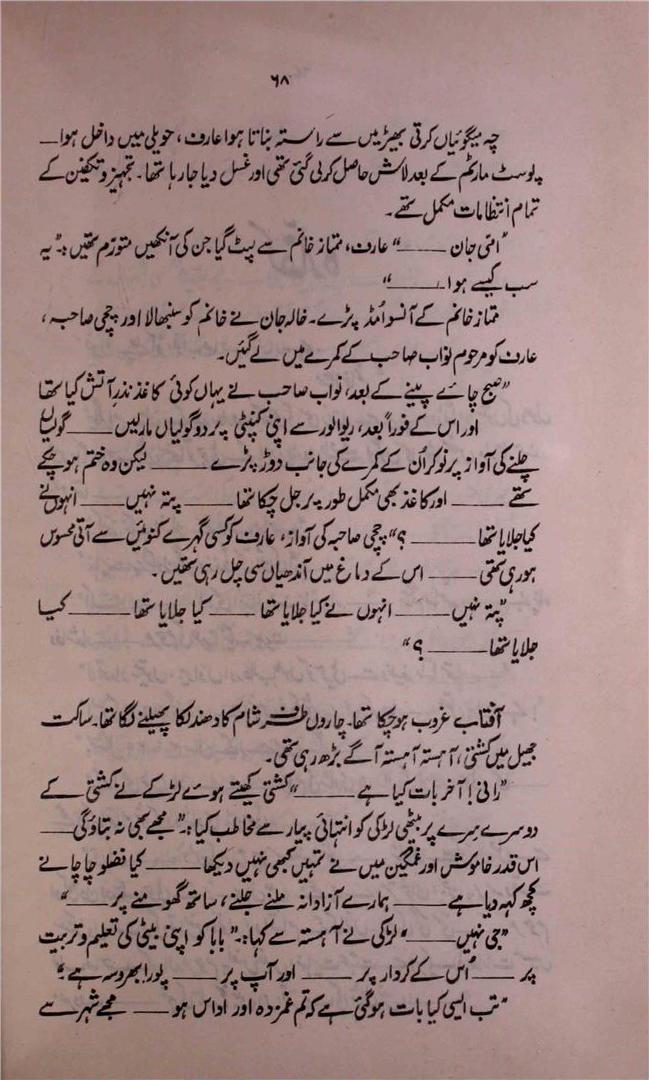 ۶۸
چہ میگوئیاں کرتی بھیڑ میں سے راستہ بناتا ہوا عارف، حویلی میں داخل ہوا ــــ
پوسٹ مارٹم کے بعد لاش حاصل کر لی گئی تھی اور غسل دیا جا رہا تھا۔ تجہیز و تکفین کے
تمام انتظامات مکمل تھے۔
"امّی جان ــــــ" عارف، ممتاز خانم سے لپٹ گیا جن کی آنکھیں متورّم تھیں:۔ "یہ
سب کیسے ہوا ــــــ"
ممتاز خانم کے آنسو اُمڈ پڑے۔ خالہ جان نے خانم کو سنبھالا اور چچی صاحبہ،
عارف کو مرحوم نواب صاحب کے کمرے میں لے گئیں۔
"صبح چائے پینے کے بعد، نواب صاحب نے یہاں کوئی کاغذ نذرِ آتش کیا تھا
اور اس کے فوراً بعد، ریوالور سے اپنی کنپٹی پر دو گولیاں مار لیں ــــــ گولیاں
چلنے کی آواز پر نوکر اُن کے کمرے کی جانب دوڑ پڑے ــــــ لیکن وہ ختم ہو چکے
تھے ــــــ اور کاغذ بھی مکمل طور پر جل چکا تھا ــــــ پتہ نہیں ــــــ انہوں نے
کیا جلایا تھا ــــــ ؟" چچی صاحبہ کی آواز، عارف کو کسی گہرے کنوئیں سے آتی محسوس
ہو رہی تھی ــــــ اس کے دماغ میں آندھیاں سی چل رہی تھیں۔
"پتہ نہیں ــــــ انہوں نے کیا جلایا تھا ــــــ کیا جلایا تھا ــــــ کیا
جلایا تھا ــــــ ؟"
آفتاب غروب ہو چکا تھا۔ چاروں طرف شام کا دھندلکا پھیلنے لگا تھا۔ ساکت
جھیل میں کشتی، آہستہ آہستہ آگے بڑھ رہی تھی۔
"رانی! آخر بات کیا ہے ــــــ" کشتی کھیتے ہوئے لڑکے نے کشتی کے
دوسرے سرے پر بیٹھی لڑکی کو انتہائی پیار سے مخاطب کیا:۔ "مجھے بھی نہ بتاؤ گی ــــ
اس قدر خاموش اور غمگین میں نے تمہیں کبھی نہیں دیکھا ــــــ کیا فضلو چاچا نے
کچھ کہہ دیا ہے ــــــ ہمارے آزادانہ ملنے جلنے، ساتھ گھومنے پر ــــــ"
"جی نہیں ــــــ" لڑکی نے آہستہ سے کہا:۔ "بابا کو اپنی بیٹی کی تعلیم و تربیت
پر ــــــ اُس کے کردار پر ــــــ اور آپ پر ــــــ پورا بھروسہ ہے"۔
"تب ایسی کیا بات ہو گئی ہے کہ تم غمزدہ اور اداس ہو ــــــ مجھے شہر سے